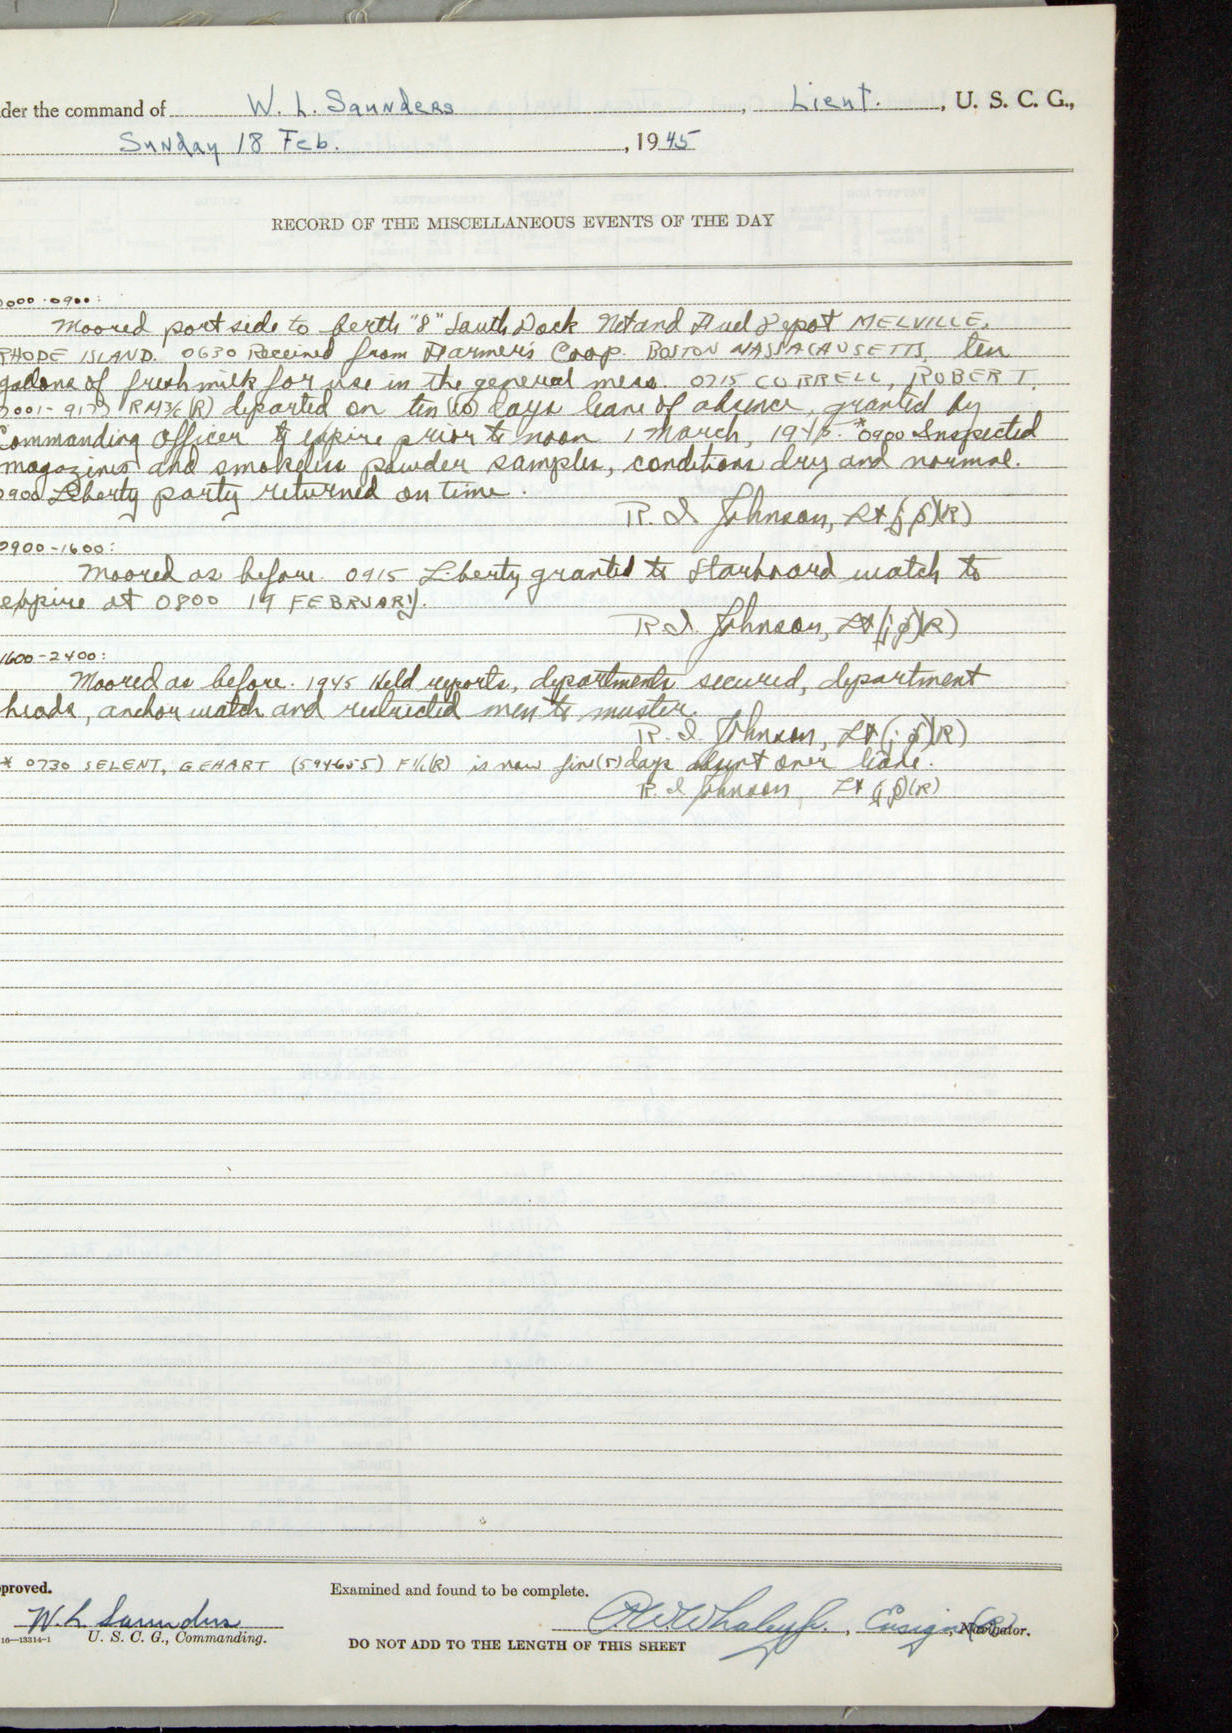 der the command of W. L. Saunders, Lieut., U. S. C. G.,
Sunday 18 Feb., 1945
RECORD OF THE MISCELLANEOUS EVENTS OF THE DAY
0000-0900:
Moored port side to berth "8" South Dock Net and Fuel Depot MELVILLE,
RHODE ISLAND. 0630 Received from Farmer's Coop. BOSTON MASSACAUSETTS, ten
gallons of fresh milk for use in the general mess. 0715 CORRELL, ROBERT
RM3/c (R) departed on ten (10) days leave of absence, granted by
Commanding Officer to expire prior to noon 1 March, 1945. *0900 Inspected
magazines and smokeless powder samples, conditions dry and normal.
0900 Liberty party returned on time.
R. I. Johnson, Lt (j.g)(R)
0900-1600:
Moored as before. 0915 Liberty granted to Starboard watch to
expire at 0800 19 FEBRUARY.
R. I. Johnson, Lt (j.g)(R)
1600-2400:
Moored as before. 1945 Held reports, departments secured, department
heads, anchor watch and restricted men to muster.
R. I. Johnson, Lt (j.g)(R)
* 0730 SELENT, GEHART (594655) F1/c(R) is now five (5) days absent over leave.
R. I Johnson, Lt (j.g)(R)
proved.
Examined and found to be complete.
W. L. Saunders
Whaley Jr., Ensign (R), Navigator.
16—13314-1 U. S. C. G., Commanding.
DO NOT ADD TO THE LENGTH OF THIS SHEET